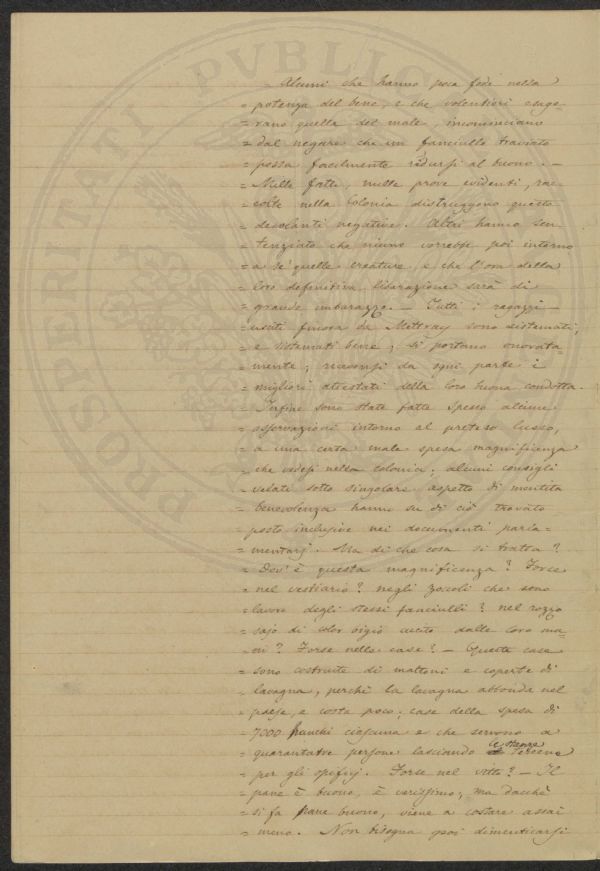 = Alcuni che hanno poca fede nella
= potenza del bene, e che volentieri esage-
= rano quella del male, incominciano
= dal negare che un fanciullo traviato
= possa facilmente ridursi al buono. —
= Mille fatti, mille prove evidenti, rac-
= colte nella Colonia distruggono queste
= desolanti negative. Altri hanno sen-
= tenziato che niuno vorrebbe poi intorno
= a se quelle creature, e che l'ora della
= loro definitiva liberazione sarà di
= grande imbarazzo. — Tutti i ragazzi
= usciti finora da Mettray sono sistemati;
= e sistemati bene; si portano onorata-
= mente; riconsi da ogni parte i
= migliori attestati della loro buona condotta.
= Infine sono state fatte spesso alcune
= osservazioni intorno al preteso lusso,
= a una certa male spesa magnificenza
= che vedesi nella colonia; alcuni consigli
= velati sotto singolare aspetto di mentita
= benevolenza hanno su di ciò trovato
= posto inclusive nei documenti parla=
= mentarj. Ma di che cosa si tratta?
= Dov'è questa magnificenza? Forse
= nel vestiario? negli zoccoli che sono
= lavoro degli stessi fanciulli? nel rozzo
= sajo di color bigio cucito dalle loro ma-
= ni? Forse nelle case? — Queste case
= sono costruite di mattoni e coperte di
= lavagna, perchè la lavagna abbonda nel
= paese, e costa poco; case della spesa di
= 7000 franchi ciascuna e che servono a
= quarantatre persone lasciando le stanze terrene
= per gli opifizj. Forse nel vitto? — Il
= pane è buono, è verissimo; ma dacchè
= si fa pane buono, viene a costare assai
= meno. Non bisogna poi dimenticarsi
PROSPERITATI PVBLIC